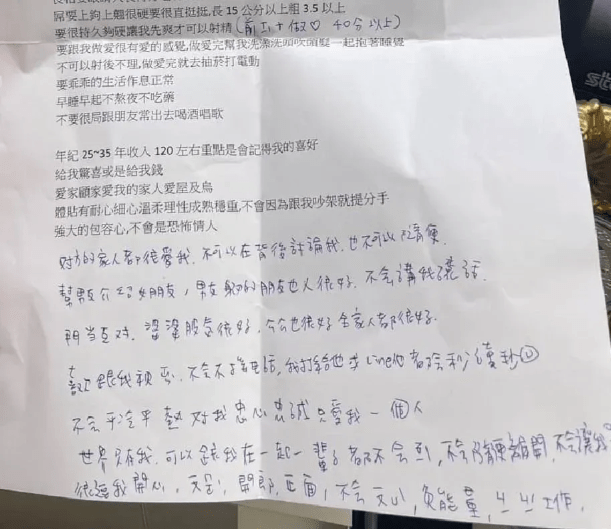 屌要上鉤上翹很硬要很直挺挺,長 15 公分以上粗 3.5 以上
要很持久夠硬讓我先爽才可以射精 (前 + 做♡ 40分以上)
要跟我做愛很有愛的感覺,做愛完幫我洗澡洗頭吹頭髮一起抱著睡覺
不可以射後不理,做愛完就去抽菸打電動
要乖乖的生活作息正常
早睡早起不熬夜不吃藥
不要很局跟朋友常出去喝酒唱歌
年紀 25~35 年收入 120 左右重點是會記得我的喜好
給我驚喜或是給我錢
愛家顧家愛我的家人愛屋及烏
體貼有耐心細心溫柔理性成熟穩重,不會因為跟我吵架就提分手
強大的包容心,不會是恐怖情人
對方的家人都很愛我,不可以在背後討論我,也不可以隨便
幫男友介紹女朋友,男友 的朋友也人很好,不會講我壞話
門當互對,婆婆 很好,公公也很好全家人都很好.
跟我 ,不會不接電話,我打給他或Line他都會秒 讀秒
不會乎冷乎熱對我忠心忠誠只愛我一個人
世界只有我,可以跟我在一起一輩子都不會 ,不會隨便離開,不會讓我
很 我開心,天 ,開朗,正面,不會 ,負能量, 工作,